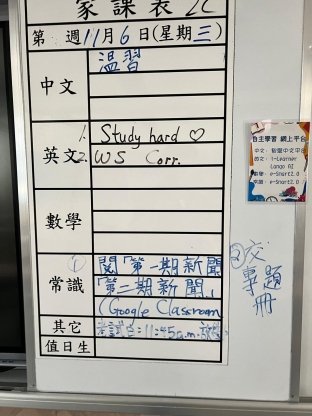 家課表 2C
第 週 11月6日(星期三)
中文
溫習
英文
1. Study hard ♡
2. WS Corr.
數學
常識
① 閱「第一期新聞
「第二期新聞」
(Google Classroom
其它
考試日:11:45a.m.放學
值日生
②交
專題
冊
自主學習 網上平台
i-Learner
e-Smart2.0
e-Smart2.0